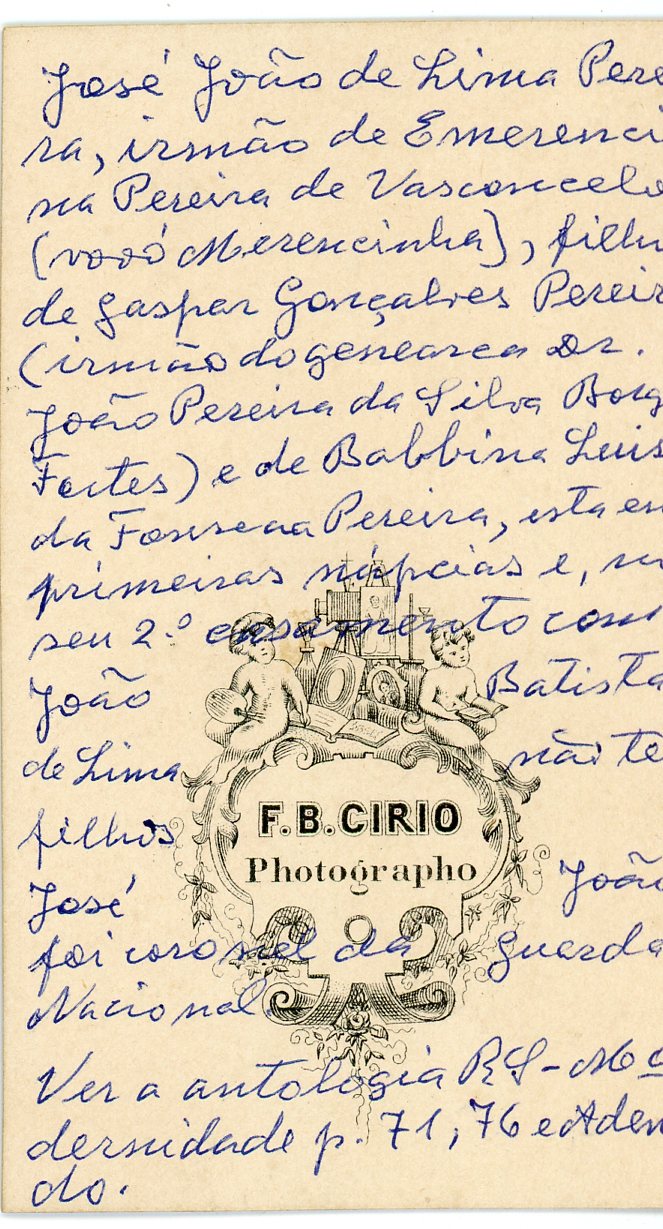 José João de Lima Pere
ra, irmão de Emerenci
na Pereira de Vasconcelo
(vovó Merencinha), filho
de Gaspar Gonçalves Pereir
(irmão do genearca Dr.
João Pereira da Silva Borg
Fortes) e de Balbina Luis
da Fonseca Pereira, esta em
primeiras núpcias e, no
seu 2.º casamento com
João Batista
de Lima não te
filhos
F. B. CIRIO
Photographo
José João
foi coronel da Guarda
Nacional.
Ver a antologia RS-Mo
dernidade p. 71, 76 e Aden
do.